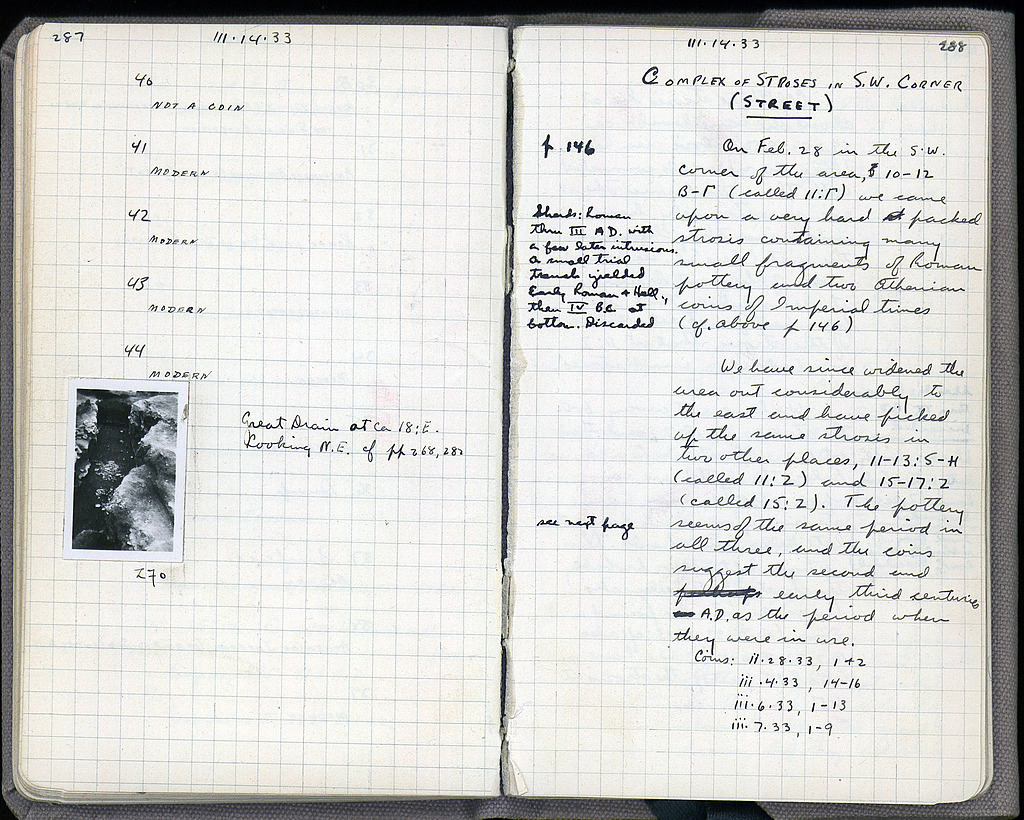 287
III·14·33
40
NOT A COIN
41
MODERN
42
MODERN
43
MODERN
44
MODERN
Great Drain at ca 18:E.
Looking N.E. cf pp 268, 282
270
III·14·33
288
COMPLEX OF STROSES IN S.W. CORNER
(STREET)
p 146
On Feb. 28 in the S.W.
corner of the area, 10-12
B-Γ (called 11:Γ) we came
upon a very hard packed
strosis containing many
small fragments of Roman
pottery and two Athenian
coins of Imperial times
(cf. above p 146)
Sherds: Roman
thru III A.D. with
a few later intrusions.
a small trial
trench yielded
Early Roman + Hell.,
then IV B.C. at
bottom. Discarded
We have since widened the
area out considerably to
the east and have picked
up the same strosis in
two other places, 11-13:S-H
(called 11:Z) and 15-17:Z
(called 15:Z). The pottery
see next page
seems of the same period in
all three, and the coins
suggest the second and
perhaps early third centuries
A.D. as the period when
they were in use.
Coins: ii·28·33, 1+2
iii·4·33, 14-16
iii·6·33, 1-13
iii·7·33, 1-9